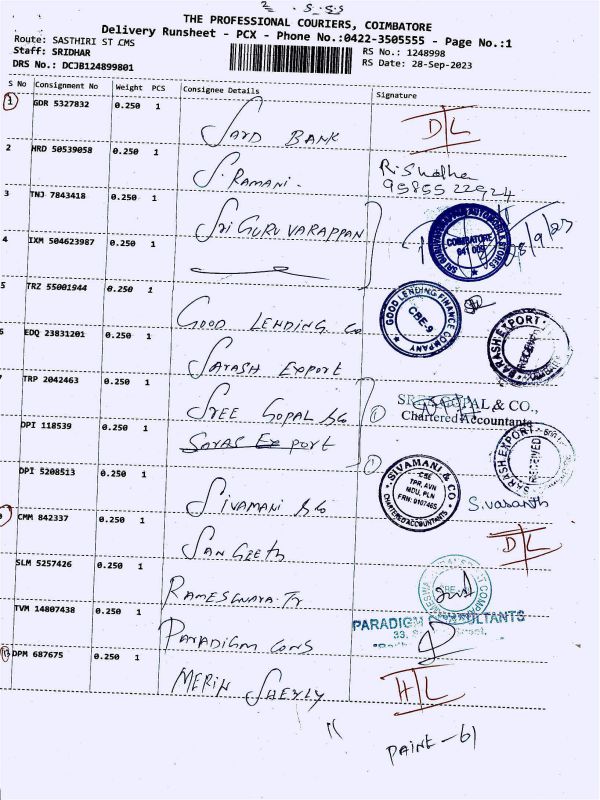 THE PROFESSIONAL COURIERS, COIMBATORE
Delivery Runsheet - PCX - Phone No.:0422-3505555 - Page No.:1
Route: SASTHIRI ST CMS
Staff: SRIDHAR
RS No.: 1248998
DRS No.: DCJB124899801
RS Date: 28-Sep-2023
S No Consignment No Weight PCS Consignee Details Signature
1 GDR 5327832 0.250 1 D/L
BANK
2 HRD 50539058 0.250 1 S. RAMANI. R. Sudha
9585522924
3 TNJ 7843418 0.250 1 SRI GURUVARAPPAN
COIMBATORE
641 009
4 IXM 504623987 0.250 1
5 TRZ 55001944 0.250 1 GOOD LENDING Co
GOOD LENDING FINANCE COMPANY
CBE-9
6 EDQ 23831201 0.250 1 SARASH EXPORT
SARASH EXPORT
RECEIVED
7 TRP 2042463 0.250 1 SREE GOPAL & Co
GOPAL & CO.,
Chartered Accountants
DPI 118539 0.250 1 SARAS EXPORT
SARASH EXPORT
RECEIVED
DPI 5208513 0.250 1 SIVAMANI & Co
SIVAMANI & CO
CBE
TPR, AVN
MDU, PLN
CHARTERED ACCOUNTANTS
S. Vasanth
CMM 842337 0.250 1 SANGEETH
D/L
SLM 5257426 0.250 1 RAMESWARA Tr
TVM 14807438 0.250 1 PARADIGM CONS
PARADIGM CONSULTANTS
13 DPM 687675 0.250 1 MERIN SHERLY
H/L